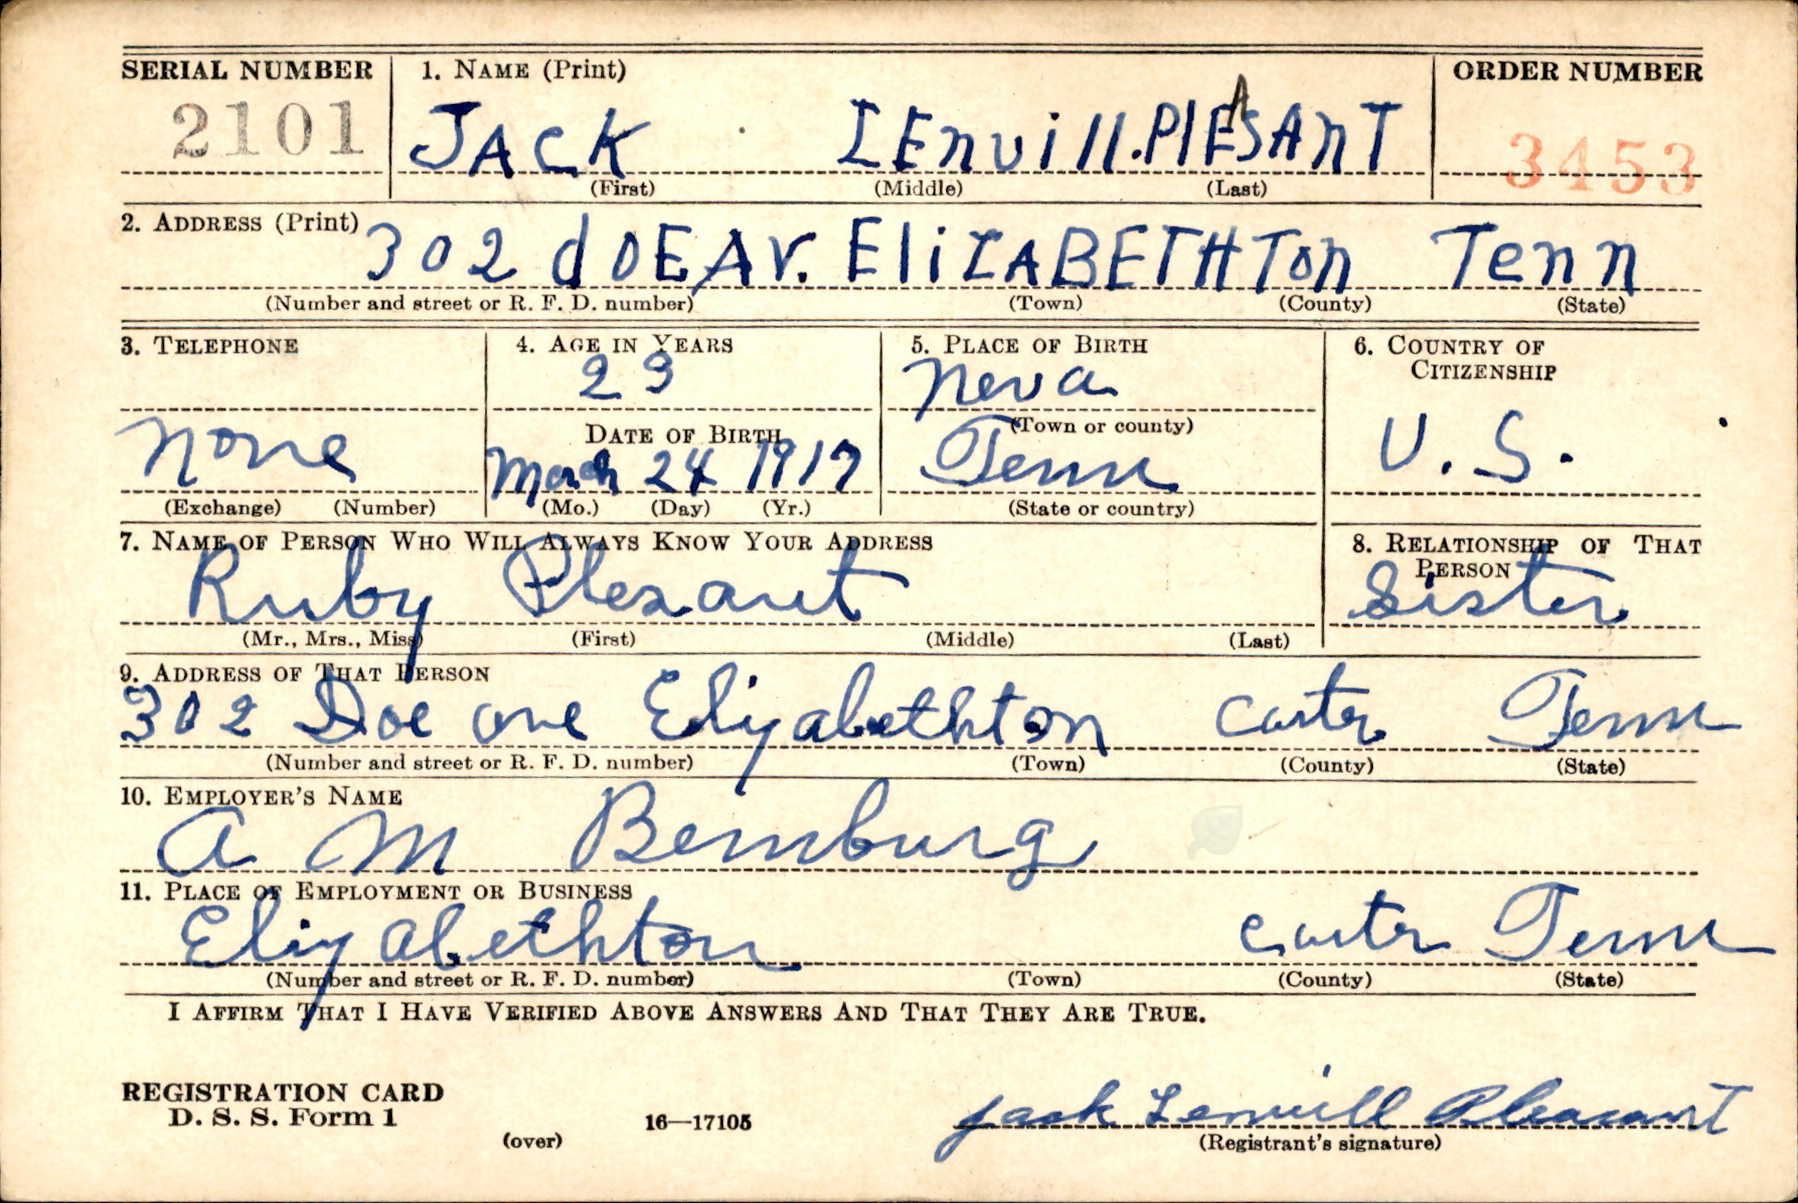 SERIAL NUMBER 1. NAME (Print) ORDER NUMBER
2101 JACK LEnvill. PlEASAnT 3453
(First) (Middle) (Last)
2. ADDRESS (Print)
302 dOE AV. EliZABETHTon Tenn
(Number and street or R. F. D. number) (Town) (County) (State)
3. TELEPHONE 4. AGE IN YEARS 5. PLACE OF BIRTH 6. COUNTRY OF CITIZENSHIP
23 Neva
DATE OF BIRTH (Town or county)
None March 24 1917 Tenn U. S.
(Exchange) (Number) (Mo.) (Day) (Yr.) (State or country)
7. NAME OF PERSON WHO WILL ALWAYS KNOW YOUR ADDRESS 8. RELATIONSHIP OF THAT PERSON
Ruby Plesant Sister
(Mr., Mrs., Miss) (First) (Middle) (Last)
9. ADDRESS OF THAT PERSON
302 Doe ave Elizabethton Carter Tenn
(Number and street or R. F. D. number) (Town) (County) (State)
10. EMPLOYER'S NAME
A M Bemburg
11. PLACE OF EMPLOYMENT OR BUSINESS
Elizabethton Carter Tenn
(Number and street or R. F. D. number) (Town) (County) (State)
I AFFIRM THAT I HAVE VERIFIED ABOVE ANSWERS AND THAT THEY ARE TRUE.
REGISTRATION CARD
D. S. S. Form 1 16—17105 Jack Lenvill Pleasant
(over) (Registrant's signature)